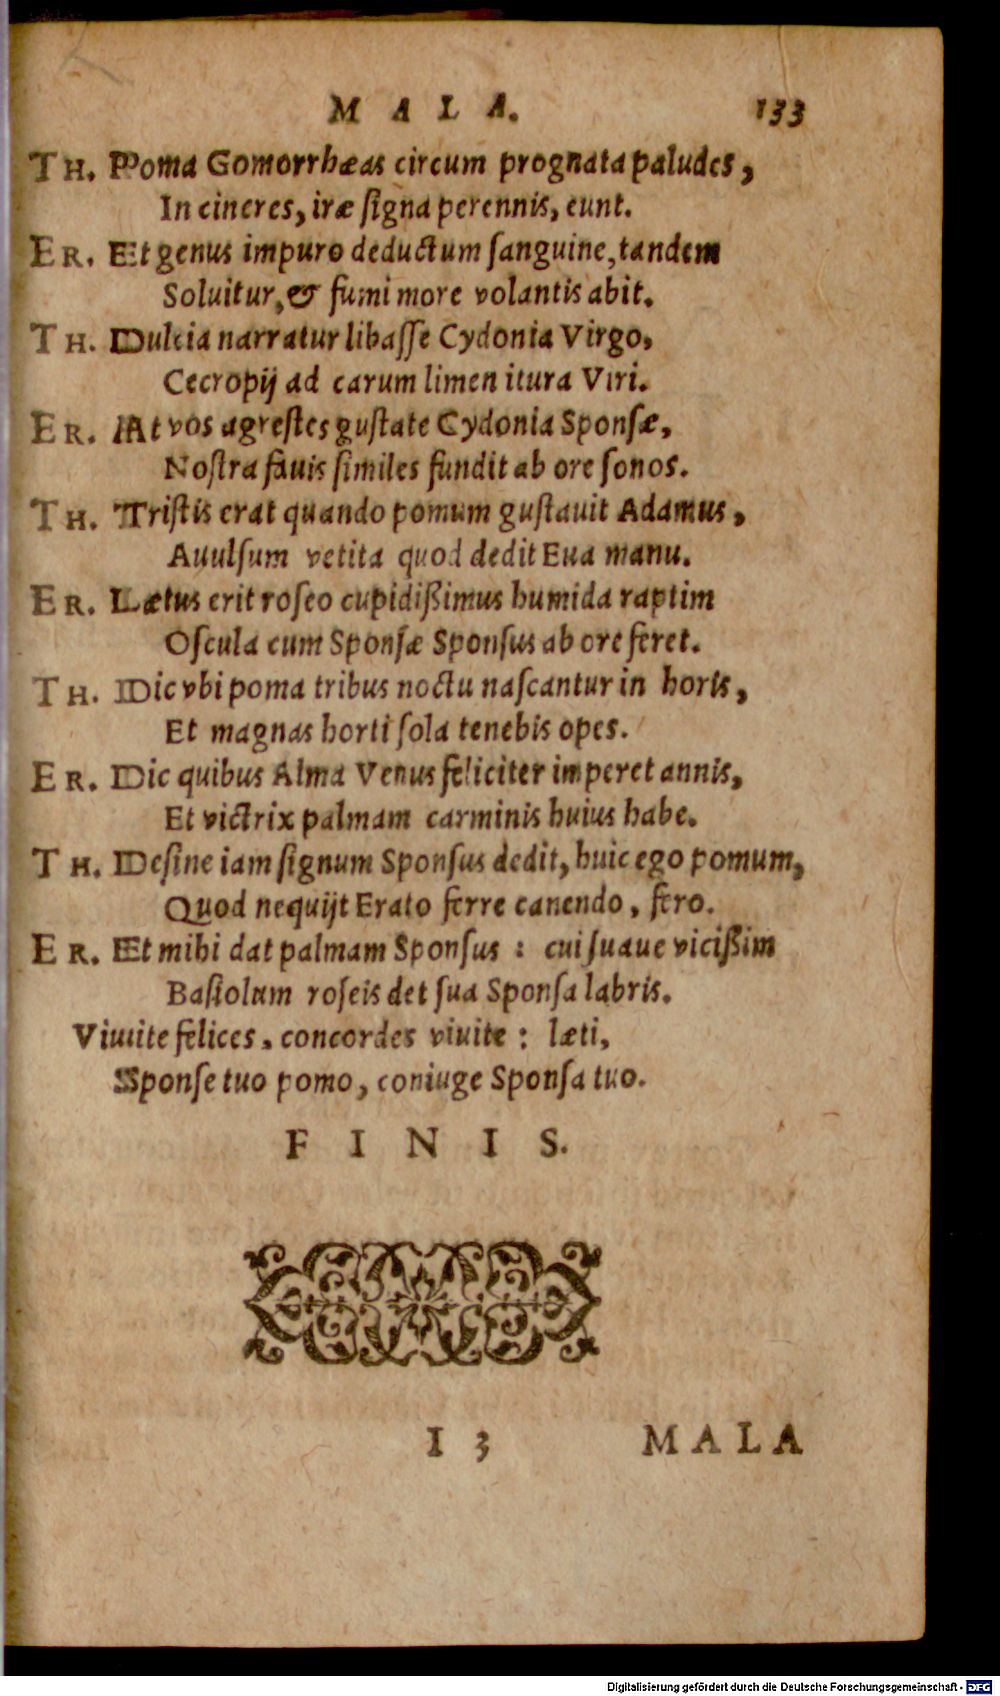 MALA. 133
TH. Poma Gomorrhæas circum prognata paludes,
In cineres, iræ ſigna perennis, eunt.
ER. Et genus impuro deductum ſanguine, tandem
Soluitur, & fumi more volantis abit.
TH. Dulcia narratur libaſſe Cydonia Virgo,
Cecropij ad carum limen itura Viri.
ER. At vos agreſtes guſtate Cydonia Sponſæ,
Noſtra fauis ſimiles fundit ab ore ſonos.
TH. Triſtis erat quando pomum guſtauit Adamus,
Auulſum vetita quod dedit Eua manu.
ER. Lætus erit roſeo cupidißimus humida raptim
Oſcula cum Sponſæ Sponſus ab ore feret.
TH. Dic vbi poma tribus noctu naſcantur in horis,
Et magnas horti ſola tenebis opes.
ER. Dic quibus Alma Venus feliciter imperet annis,
Et victrix palmam carminis huius habe.
TH. Deſine iam ſignum Sponſus dedit, huic ego pomum,
Quod nequijt Erato ferre canendo, fero.
ER. Et mihi dat palmam Sponſus : cui ſuaue vicißim
Baſiolum roſeis det ſua Sponſa labris.
Viuite felices, concordes viuite : læti,
Sponſe tuo pomo, coniuge Sponſa tuo.
FINIS.
I 3 MALA
Digitalisierung gefördert durch die Deutsche Forschungsgemeinschaft - DFG